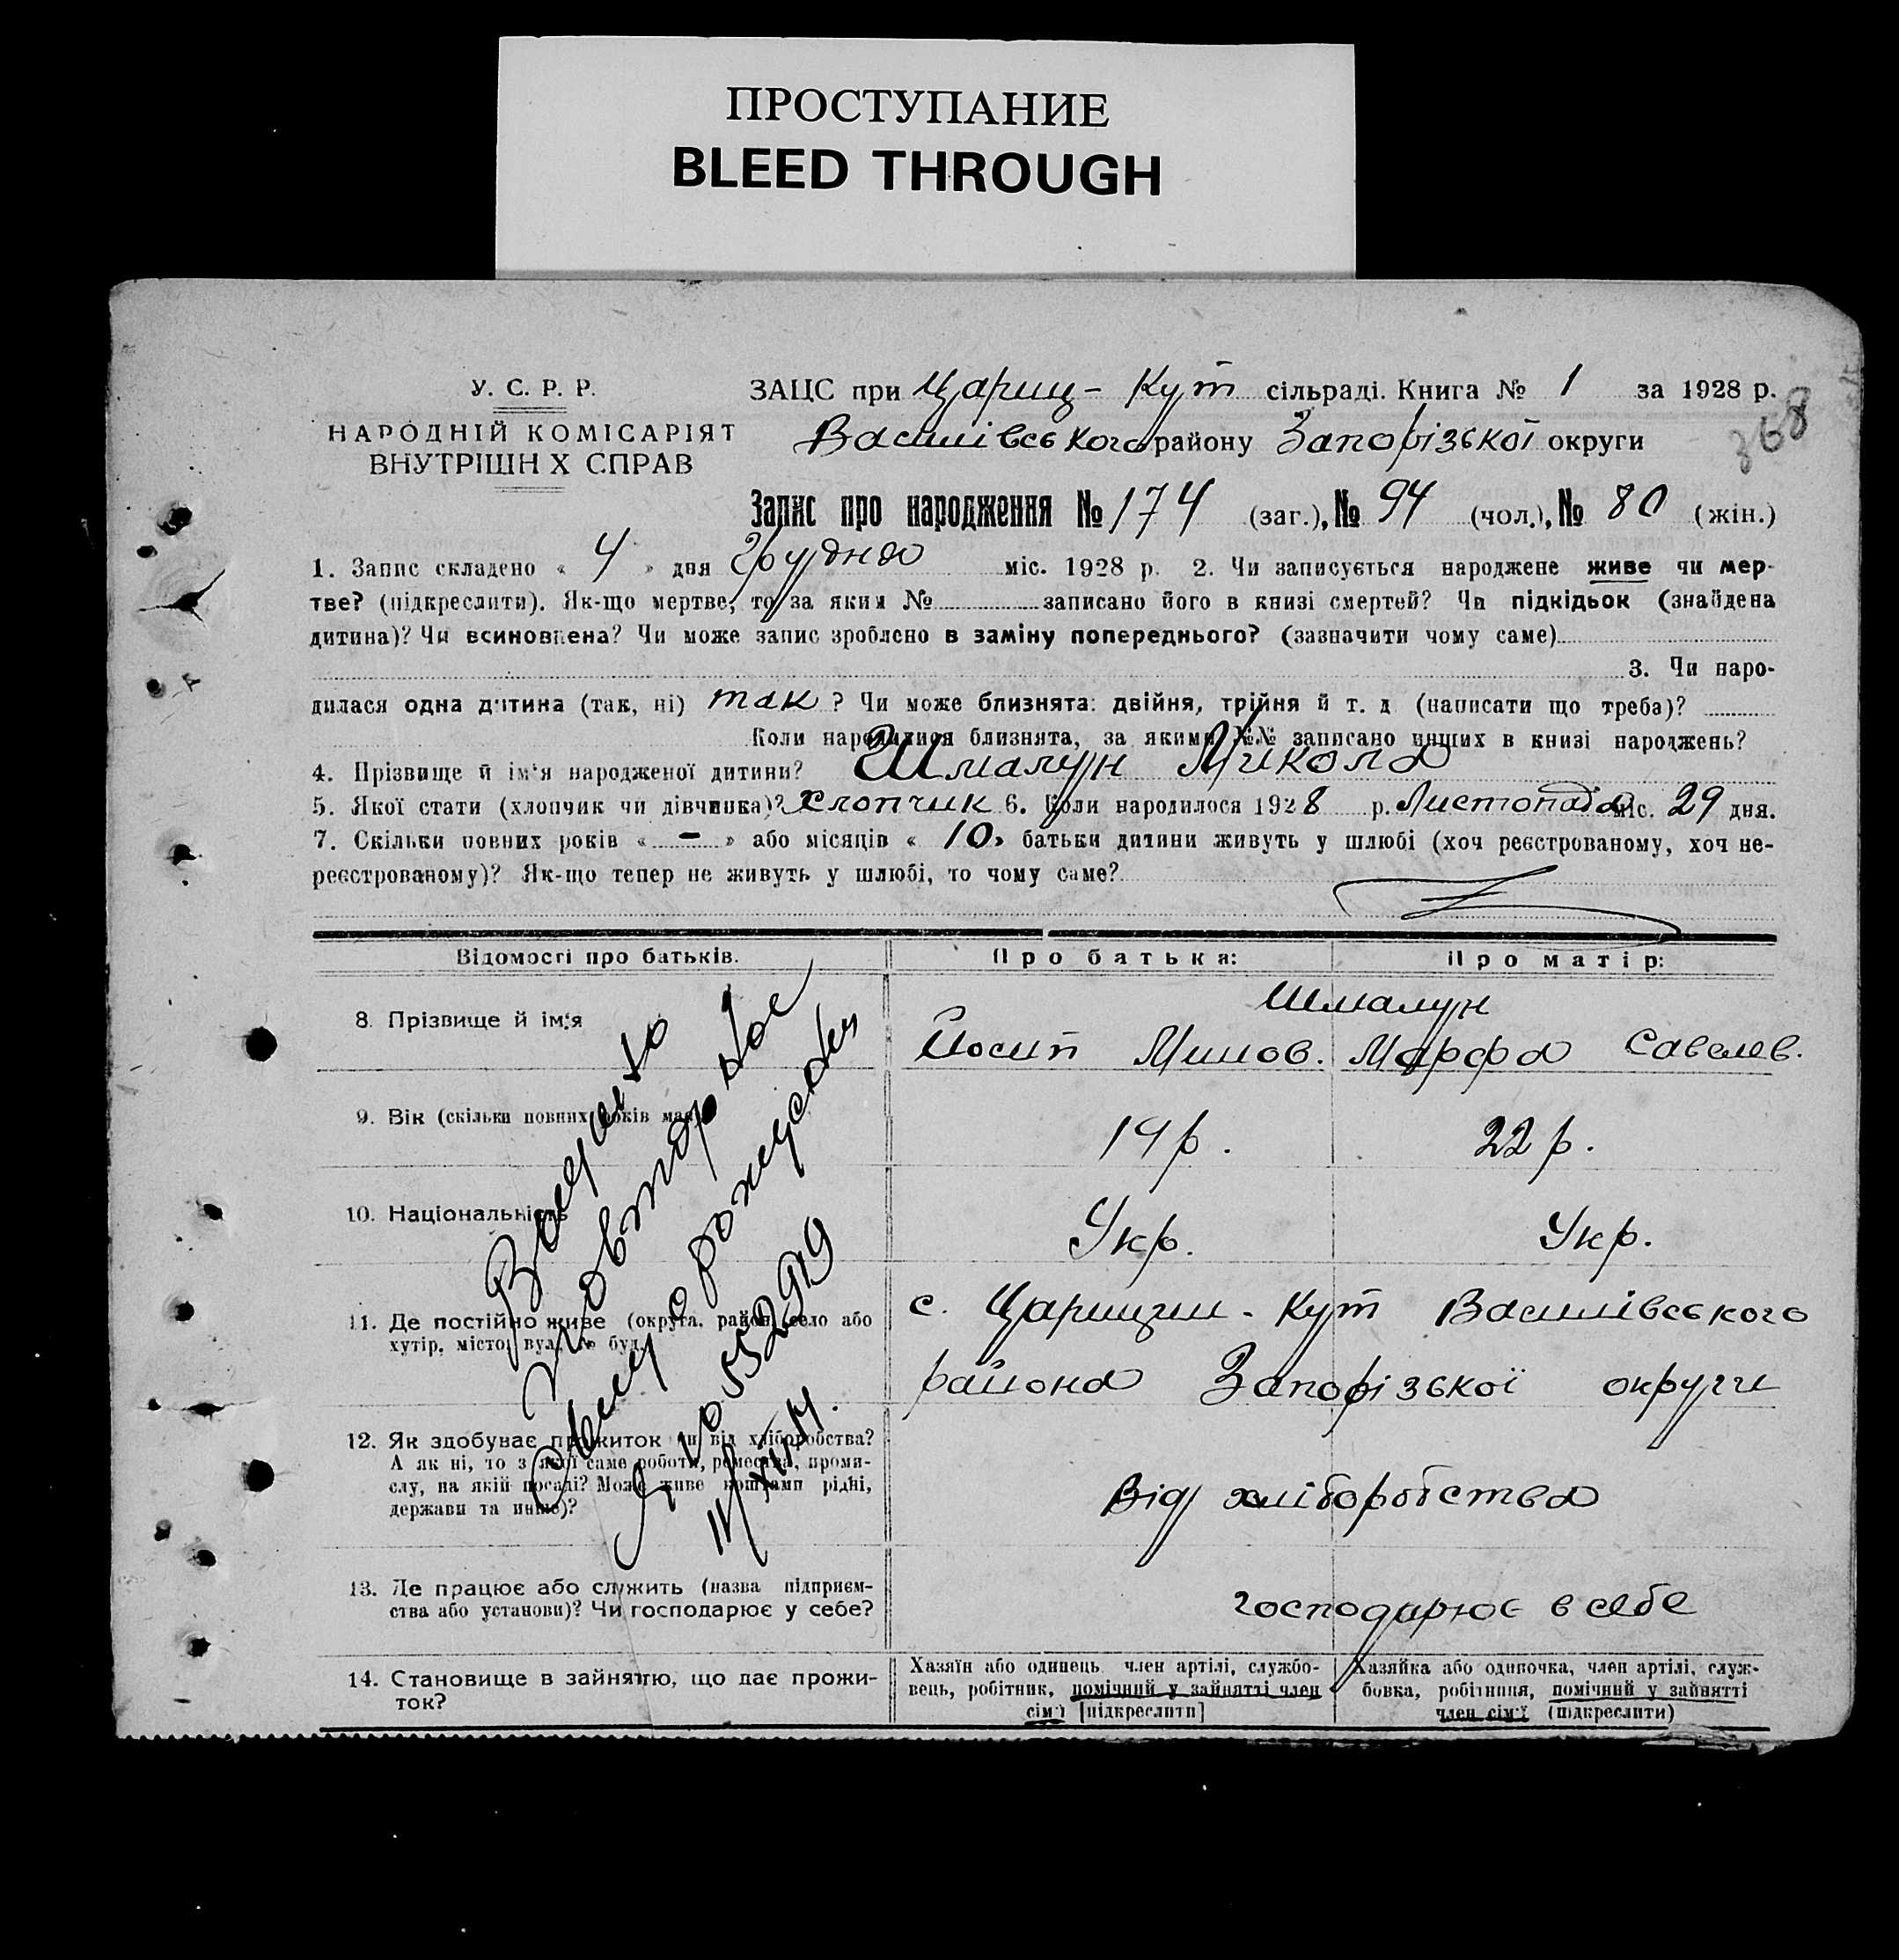 ПРОСТУПАНИЕ
BLEED THROUGH
У. С. Р. Р.
НАРОДНІЙ КОМІСАРІЯТ
ВНУТРІШН Х СПРАВ
ЗАЦС при Цариц - Кут сільраді. Книга № 1 за 1928 р.
368
Василівського району Запорізької округи
Запис про народження № 174 (заг.), № 94 (чол.), № 80 (жін.)
1. Запис складено « 4 » дня Грудня міс. 1928 р. 2. Чи записується народжене живе чи мер-
тве? (підкреслити). Як-що мертве, то за яким № записано його в книзі смертей? Чи підкідьок (знайдена
дитина)? Чи всиновлена? Чи може запис зроблено в заміну попереднього? (зазначити чому саме)
3. Чи наро-
дилася одна дитина (так, ні) так ? Чи може близнята: двійня, трійня й т. д (написати що треба)?
Коли народилися близнята, за якими №№ записано инших в книзі народжень?
4. Прізвище й ім'я народженої дитини? Шмалун Микола
5. Якої стати (хлопчик чи дівчинка)? Хлопчик 6. Коли народилося 1928 р. Листопада міс. 29 дня.
7. Скільки повних років « - » або місяців « 10 » батьки дитини живуть у шлюбі (хоч реєстрованому, хоч не-
реєстрованому)? Як-що тепер не живуть у шлюбі, то чому саме?
Відомості про батьків. Про батька: Про матір:
8. Прізвище й ім'я
Шмалун
Йосип Мишов. Марфа Савелев.
9. Вік (скільки повних років має)
19 р. 22 р.
10. Національність
Укр. Укр.
11. Де постійно живе (округа, район, село або
хутір, місто, вул., № буд.
с. Царицин - Кут Василівського
района Запорізької округи
12. Як здобуває прожиток чи від хліборобства?
А як ні, то з якої саме роботи, ремества, проми-
слу, на якій посаді? Може живе коштами рідні,
держави та инше)?
Від хліборобства
13. Де працює або служить (назва підприєм-
ства або установи)? Чи господарює у себе?
господарює в себе
14. Становище в зайняттю, що дає прожи-
ток?
Хазяїн або одинець член артілі, службо-
вець, робітник, помічний у зайнятті член
сім'ї [підкреслити]
Хазяйка або одиночка, член артілі, служ-
бовка, робітниця, помічний у зайнятті
член сім'ї (підкреслити)
Выдано
повторное
свид о рождении
ЯЮ 552919